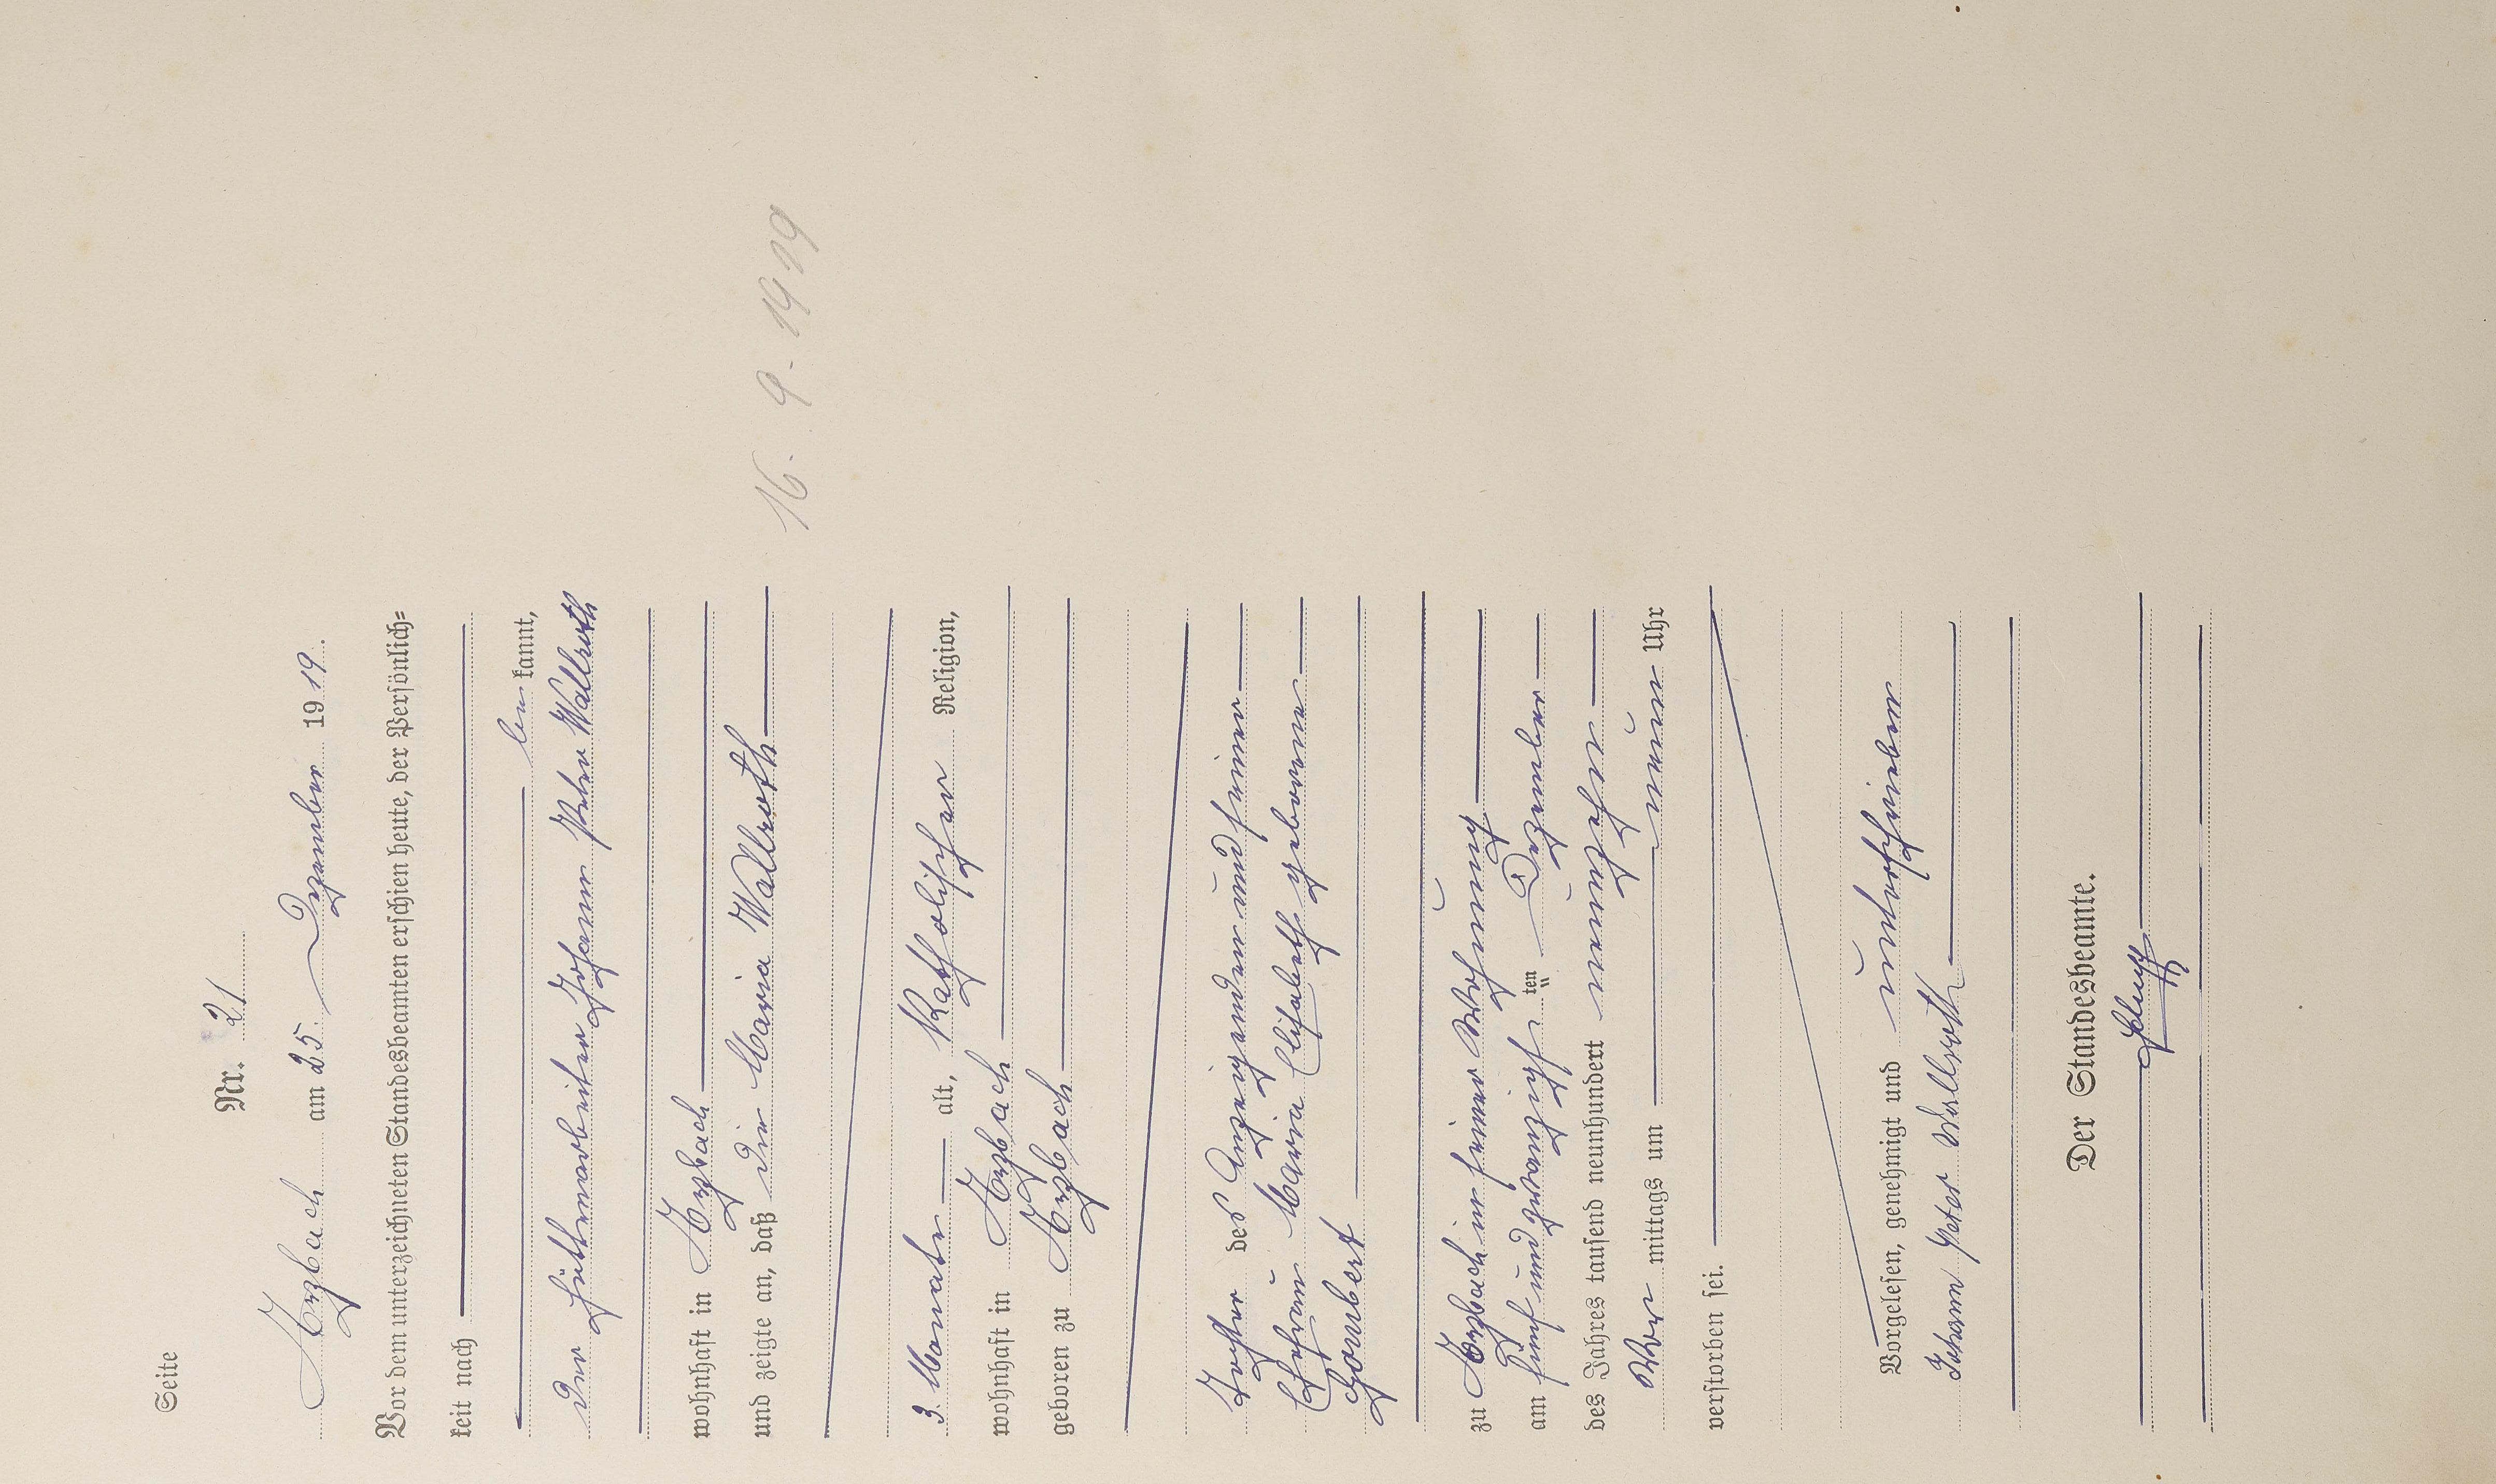 Seite
Nr. 21
Arzbach am 25. Dezember 1919.
Vor dem unterzeichneten Standesbeamten erschien heute, der Persönlich=
keit nach
be kannt,
der Hüttenarbeiter Johann Peter Wallroth
wohnhaft in Arzbach
und zeigte an, daß die Maria Wallroth
16. 9. 1919
3. Monate alt, Katholischer Religion,
wohnhaft in Arzbach
geboren zu Arzbach
Tochter des Anzeigenden und seiner
Ehefrau Maria Elisabeth geborene
Gombert
zu Arzbach in seiner Wohnung
am fünf und zwanzigsten Dezember
des Jahres tausend neunhundert neunzehn
Vor mittags um neun Uhr
verstorben sei.
Vorgelesen, genehmigt und unterschrieben
Johann Peter Wallroth
Der Standesbeamte.